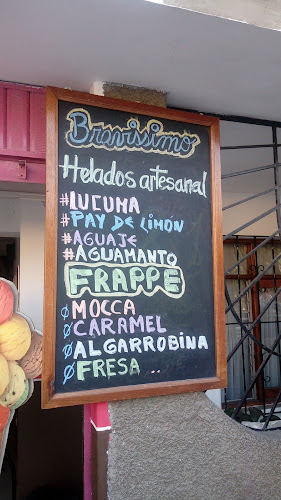 Bravissimo
Helados artesanal
#LUCUMA
#PAY DE LIMÓN
#AGUAJE
#AGUAMANTO
FRAPPÉ
Ø MOCCA
Ø CARAMEL
Ø ALGARROBINA
Ø FRESA ..